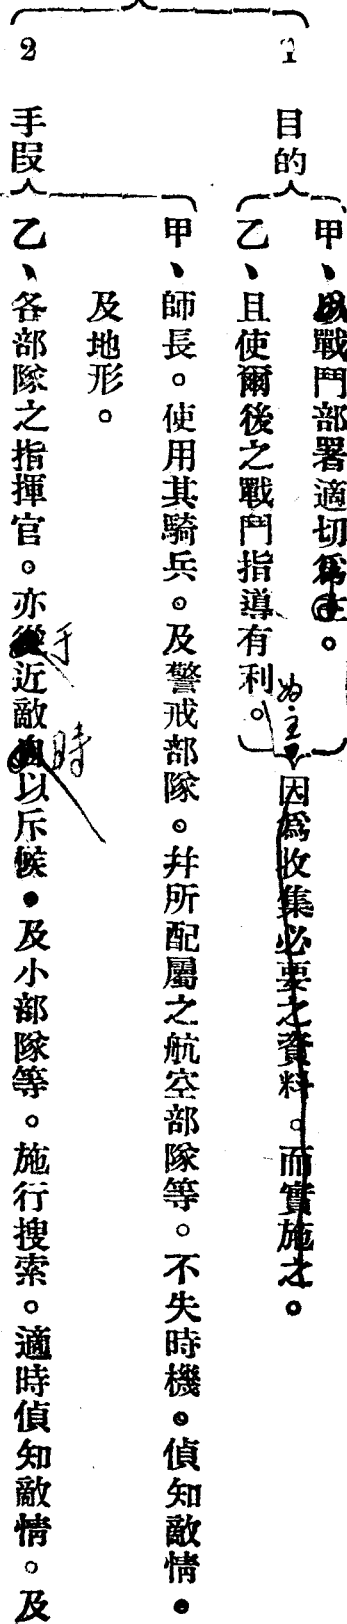 1 目的
甲、以戰鬥部署適切爲主。
乙、且使爾後之戰鬥指導有利。
爲主
因爲收集必要之資料。而實施之。
2 手段
甲、師長。使用其騎兵。及警戒部隊。幷所配屬之航空部隊等。不失時機。偵知敵情。
及地形。
乙、各部隊之指揮官。亦從近敵以斥候。及小部隊等。施行搜索。適時偵知敵情。及
于
時